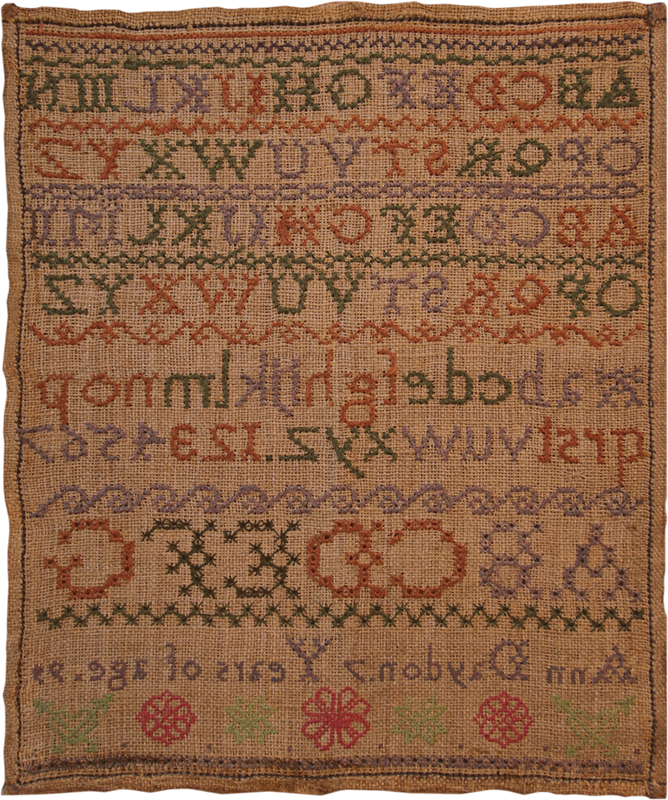 ABCDEFGHIJKLMN
OPQRSTVUWXYZ
ABCDEFGHIJKLM
OPQRSTVUWXYZ
abcdefghijklmnop
qrstvuwxyz.1234567
ABCDEFG
Ann Daydon.7 Years of age.99